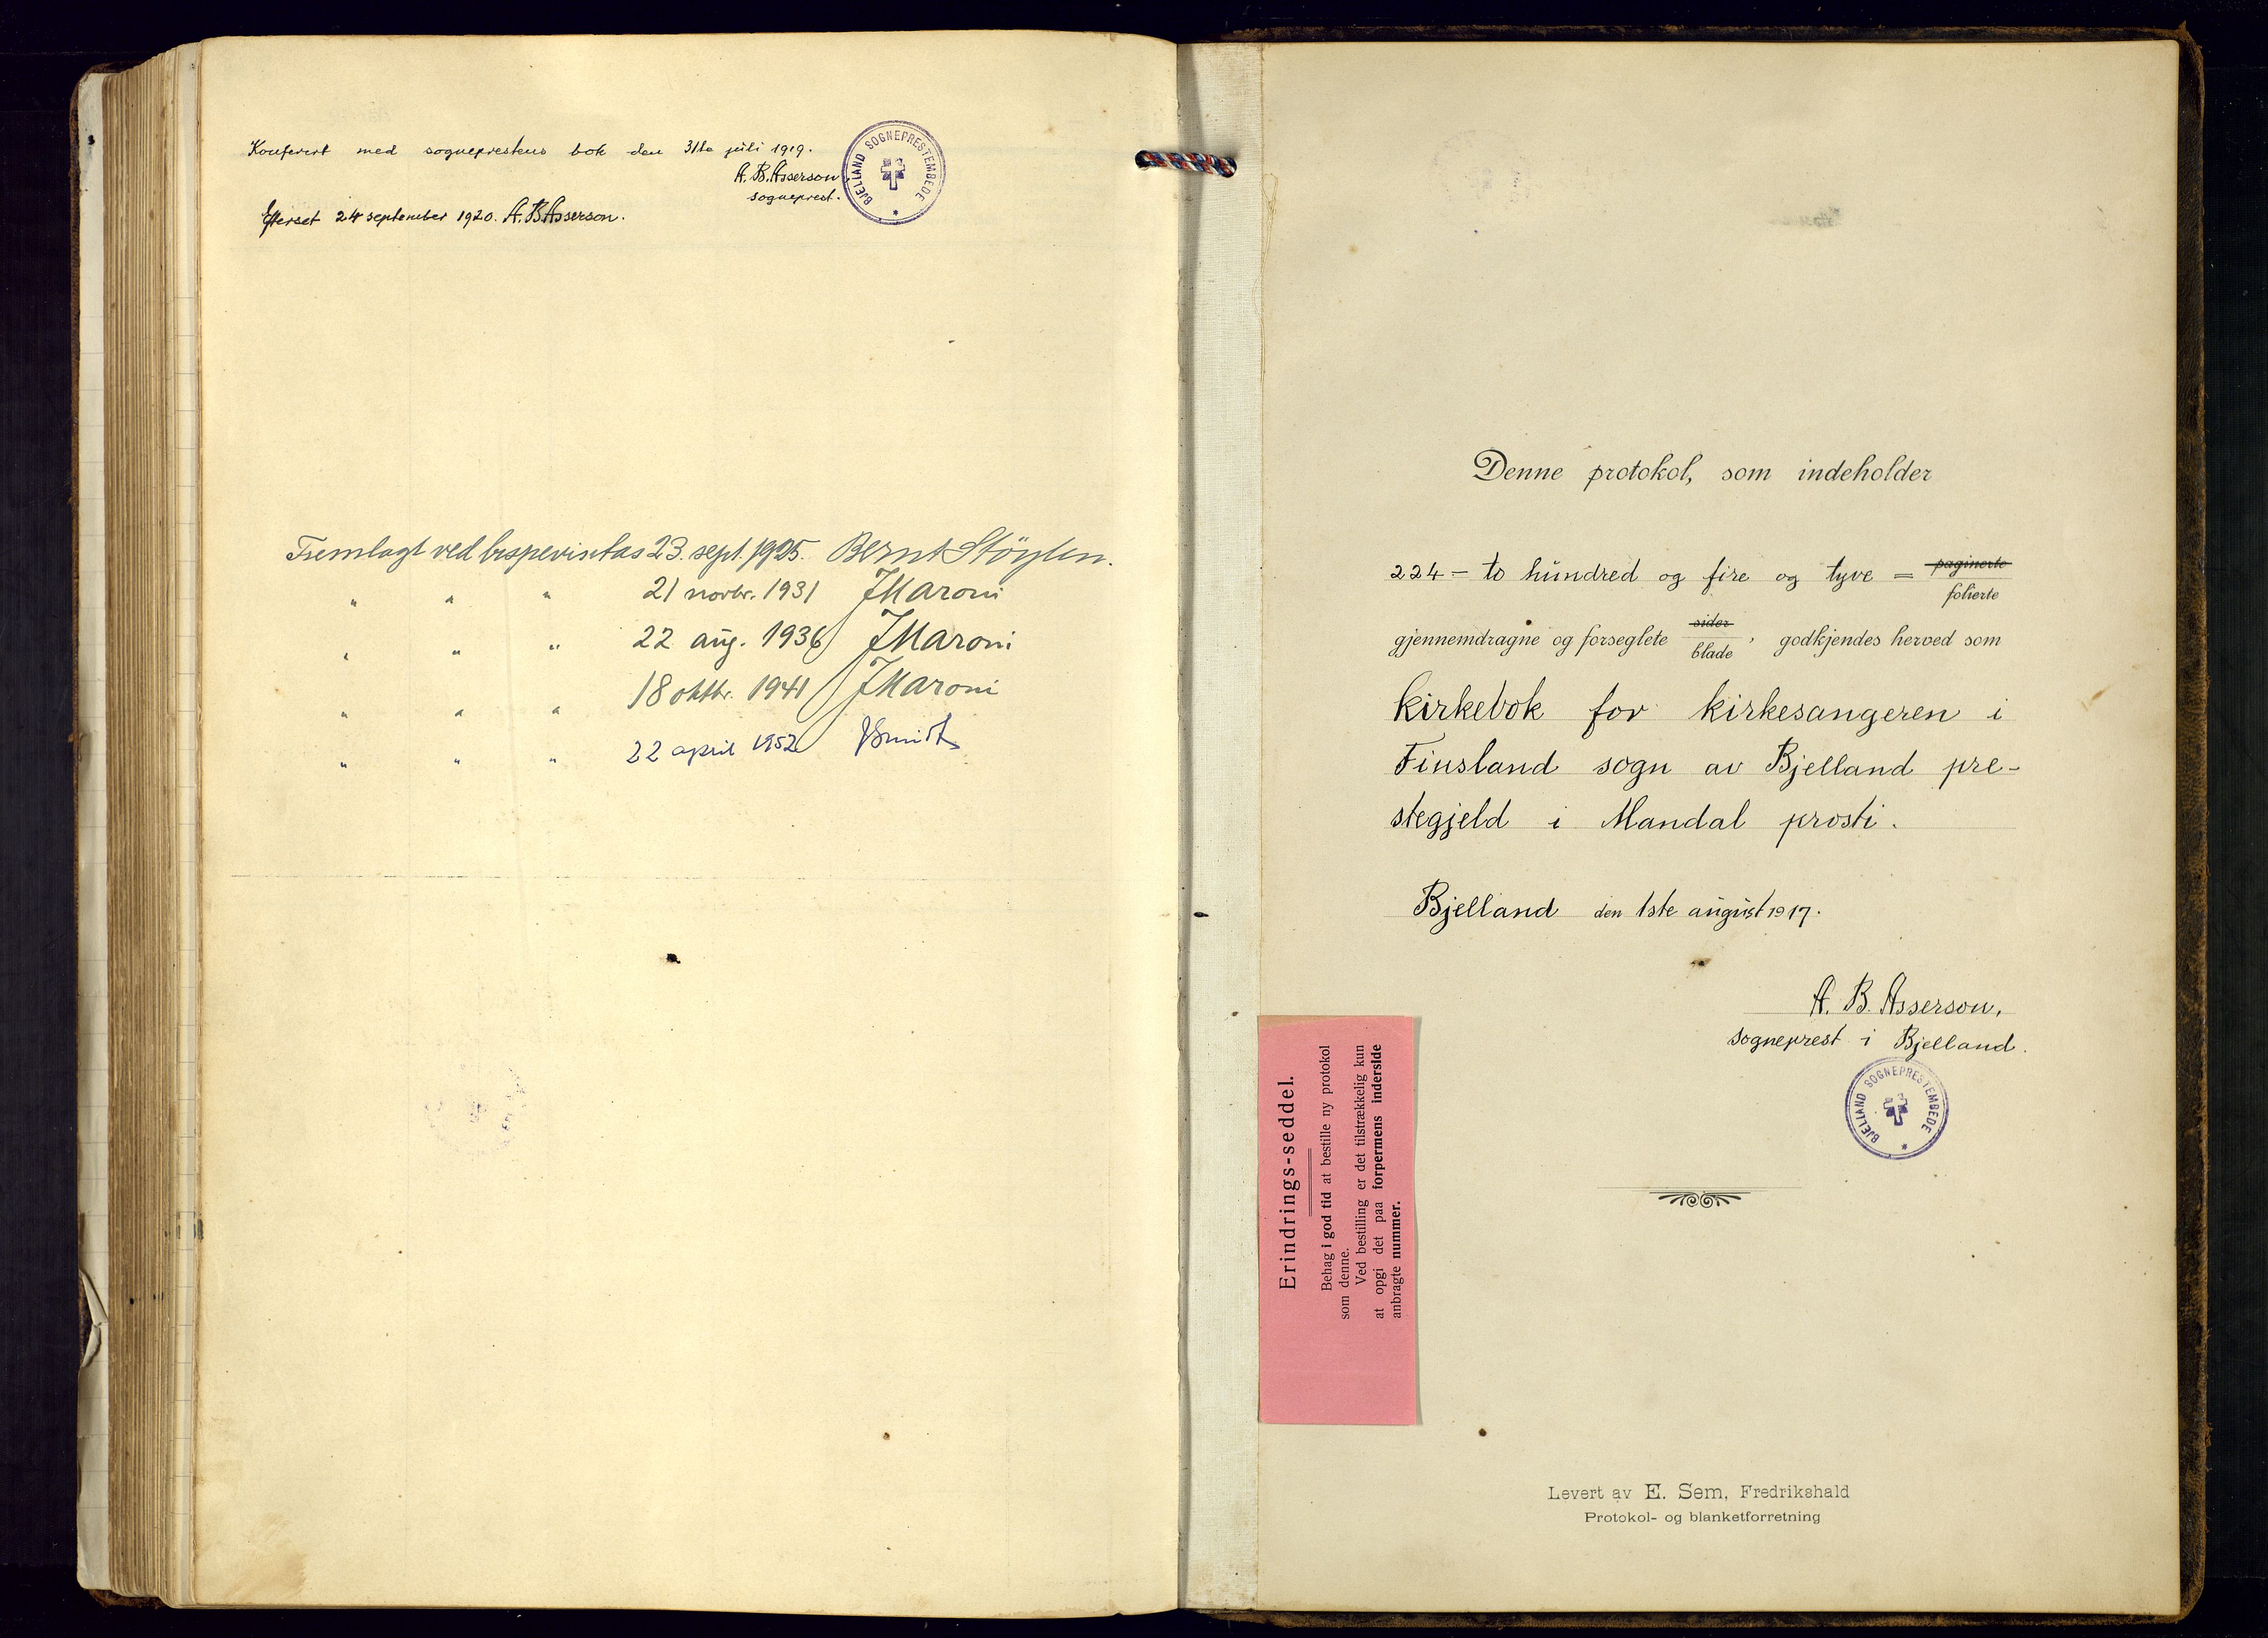 Konferert med sogneprestens bok den 31te juli 1919.
A. B. Asserson
sogneprest.
BJELLAND SOGNEPRESTEMBEDE
Efterset 24 september 1920. A. B. Asserson.
Fremlagt ved bispevisitas 23. sept. 1925. Bernt Støylen.
" " " 21 novbr. 1931 J Maroni
" " " 22 aug. 1936 J Maroni
" " " 18 oktbr. 1941 J Maroni
" " " 22 april 1952 J Smidt
Denne protokol, som indeholder
224 – to hundred og fire og tyve = paginerte
folierte
gjennemdragne og forseglete sider
blade, godkjendes herved som
kirkebok for kirkesangeren i
Finsland sogn av Bjelland pre-
stegjeld i Mandal prosti.
Bjelland den 1ste august 1917.
A. B. Asserson,
sogneprest i Bjelland.
BJELLAND SOGNEPRESTEMBEDE
Erindrings-seddel.
Behag i god tid at bestille ny protokol
som denne.
Ved bestilling er det tilstrækkelig kun
at opgi det paa forpermens inderside
anbragte nummer.
Levert av E. Sem, Fredrikshald
Protokol- og blanketforretning